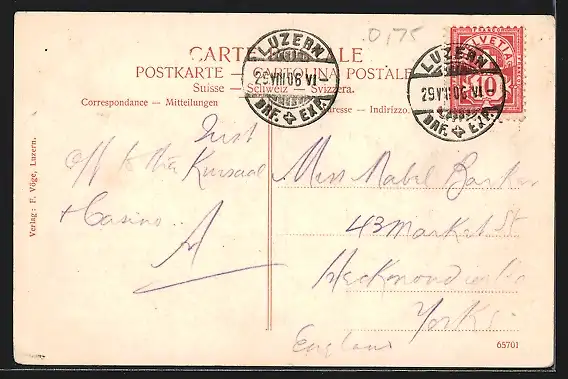 0,175
CARTE POSTALE
POSTKARTE — CARTOLINA POSTALE
Suisse — Schweiz — Svizzera.
Correspondance — Mitteilungen
Adresse — Indirizzo.
LUZERN
29.VIII.06 VI—
BRF. EXP.
LUZERN
29.VIII.06 VI—
BRF. EXP.
HELVETIA
10
Just
Off to the Kursaal
+ Casino
A
Miss Mabel Barker
43 Market St
Heckmondwike
Yorks
England
Verlag: F. Vöge, Luzern.
65701